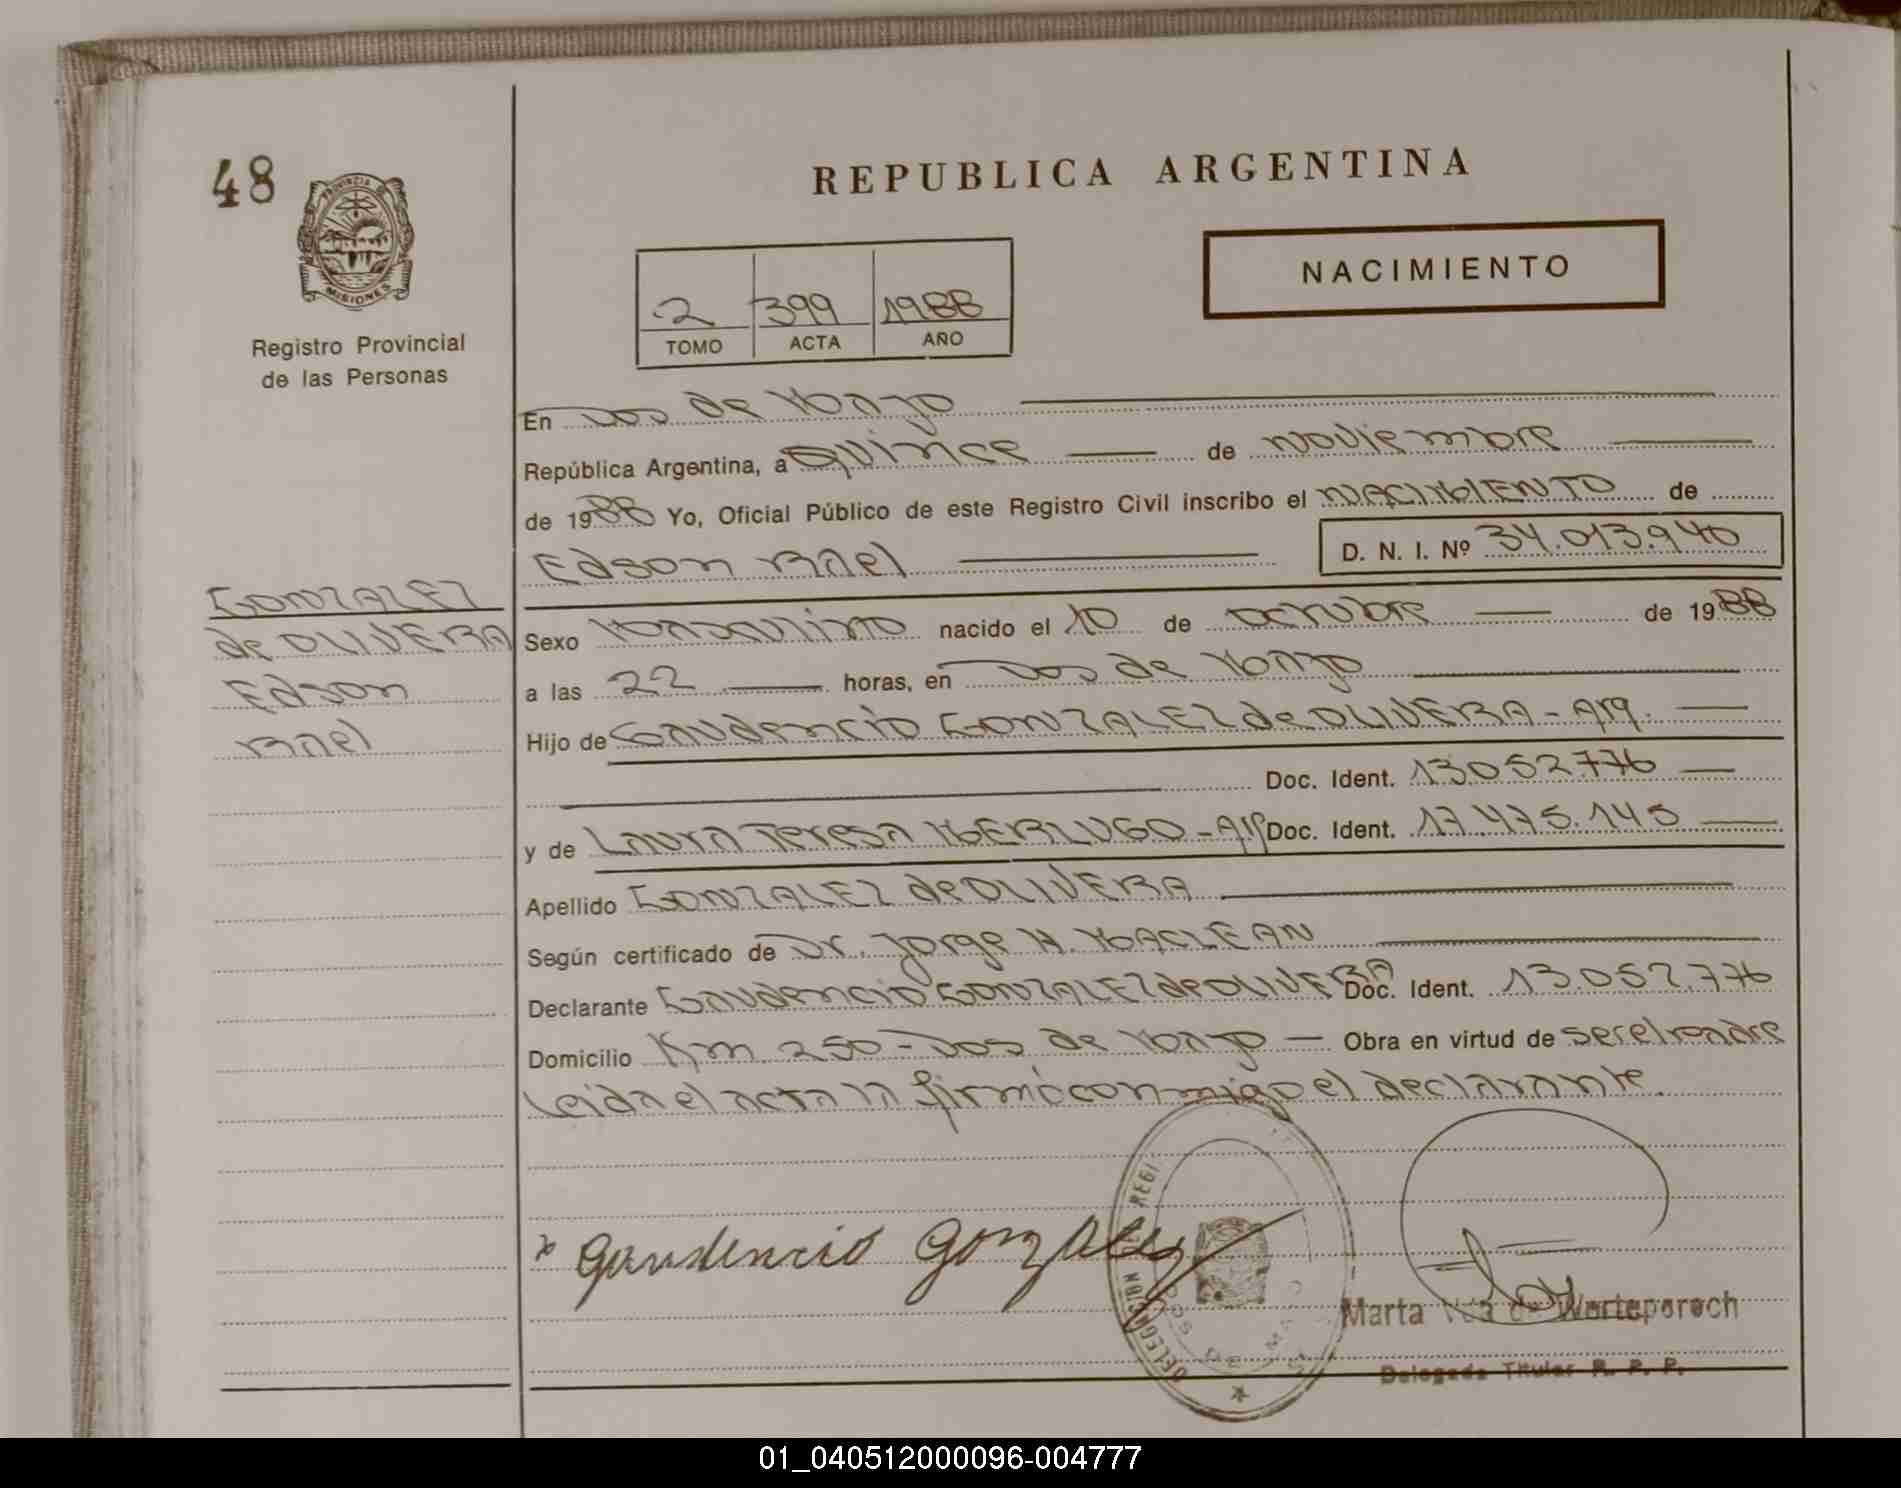 48
PROVINCIA DE
MISIONES
Registro Provincial
de las Personas
REPUBLICA ARGENTINA
NACIMIENTO
2 399 1988
TOMO ACTA AÑO
En Dos de Mayo
República Argentina, a Quince de noviembre
de 1988 Yo, Oficial Público de este Registro Civil inscribo el NACIMIENTO de
Edson D. N. I. Nº 34.013.940
GONZALEZ
de OLIVERA
Edson
Sexo Masculino nacido el 10 de octubre de 1988
a las 22 horas, en Dos de Mayo
Hijo de Gaudencio GONZALEZ de OLIVERA - Arg.
Doc. Ident. 13.052.776
y de Laura Teresa MERLUGO - Arg Doc. Ident. 17.475.145
Apellido GONZALEZ de OLIVERA
Según certificado de Dr. Jorge H. MACLEAN
Declarante Gaudencio GONZALEZ de OLIVERA Doc. Ident. 13.052.776
Domicilio Km 250 - Dos de Mayo Obra en virtud de ser el padre
Leida el acta la firmó conmigo el declarante.
Gaudencio Gonzalez
DELEGACIÓN REGI
DOS DE MAYO
Marta Vda de Werteporoch
Delegada Titular R. P. P.
01_040512000096-004777